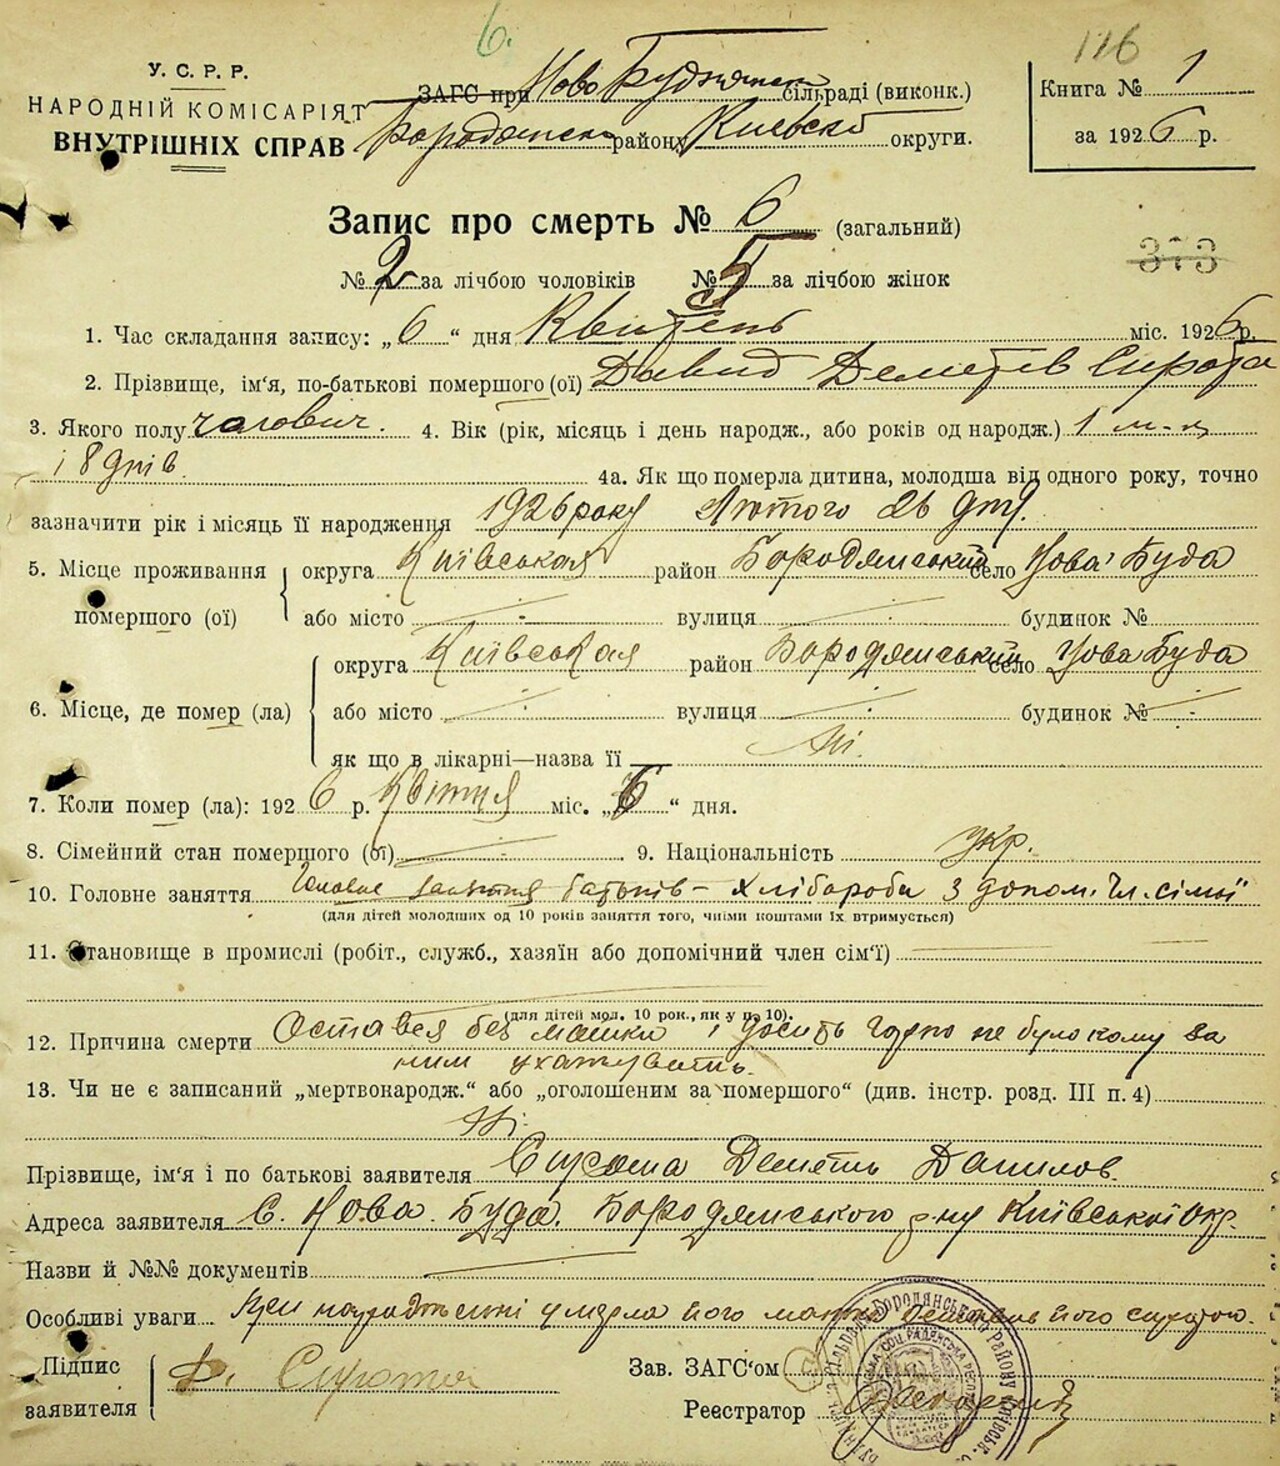 6.
116
У. С. Р. Р.
НАРОДНІЙ КОМІСАРІЯТ
ВНУТРІШНІХ СПРАВ
ЗАГС при Ново Буднянськ сільраді (виконк.)
Бородянськ району Киевско округи.
Книга № 1
за 1926 р.
Запис про смерть № 6 (загальний)
373
№ 2 за лічбою чоловіків № 5 за лічбою жінок
1. Час складання запису: „6“ дня Квитень міс. 1926 р.
2. Прізвище, ім‘я, по-батькові помершого (ої) Давид Деметів Сирота
3. Якого полу чоловіч. 4. Вік (рік, місяць і день народж., або років од народж.) 1 м-ць
і 8 днів. 4а. Як що померла дитина, молодша від одного року, точно
зазначити рік і місяць її народження 1926 року Лютого 26 дня.
5. Місце проживання помершого (ої) округа Київськая район Бородянський село Нова Буда
або місто вулиця будинок №
6. Місце, де помер (ла) округа Київськая район Бородянський село Нова Буда
або місто вулиця будинок №
як що в лікарні—назва її Ні.
7. Коли помер (ла): 1926 р. Квітня міс. „6“ дня.
8. Сімейний стан помершого (ої) 9. Національність укр.
10. Головне заняття Головне заняття батьків – хлібороби з допом. чл. сімьї
(для дітей молодших од 10 років заняття того, чиїми коштами їх втримується)
11. Становище в промислі (робіт., служб., хазяїн або допомічний член сім‘ї)
(для дітей мол. 10 рок., як у п. 10).
12. Причина смерти Остався без мамки і досить гарно не було кому за
ним ухажувать.
13. Чи не є записаний „мертвонародж.“ або „оголошеним за помершого“ (див. інстр. розд. III п. 4)
Ні.
Прізвище, ім‘я і по батькові заявителя Сирота Деметь Данилов.
Адреса заявителя С. Нова Буда. Бородянського р-ну Київської окр.
Назви й №№ документів
Особливі уваги При народженні умерла його мамка оставив його сиротою.
Підпис заявителя Д. Сирота
Зав. ЗАГС‘ом
Реєстратор